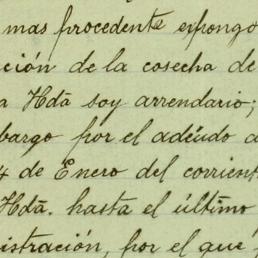 mas procedente expongo
ción de la cosecha de
a Hdā soy arrendario;
bargo por el adeúdo a
4 de Enero del corrient
Hdā. hasta el último
istración, por el que